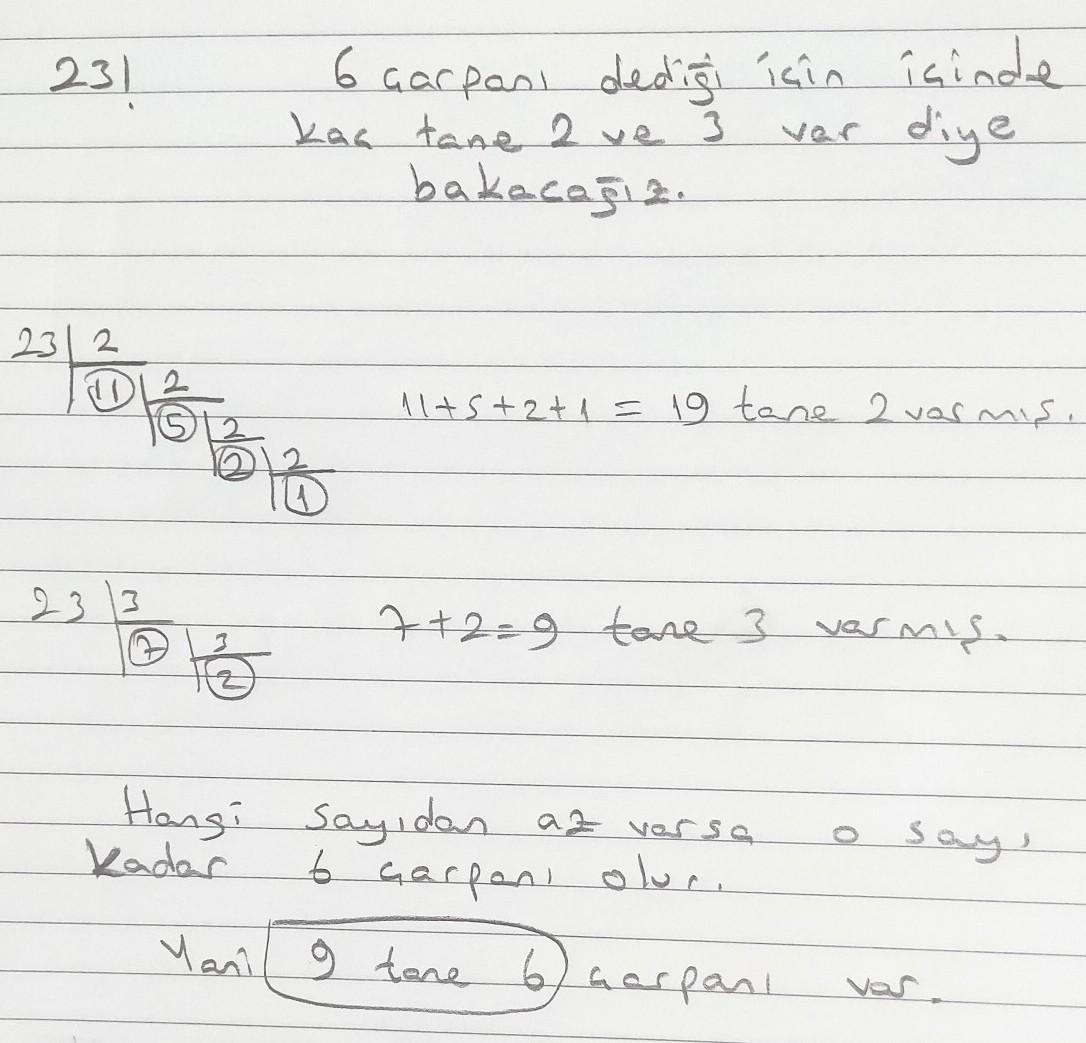 23! 6 çarpanı dediği için içinde
kaç tane 2 ve 3 var diye
bakacağız.
23 2
11 2
5 2
2 2
1
11+5+2+1 = 19 tane 2 varmış.
23 3
7 3
2
7+2=9 tane 3 varmış.
Hangi sayıdan az varsa o sayı
kadar 6 çarpanı olur.
Yani 9 tane 6 çarpanı var.